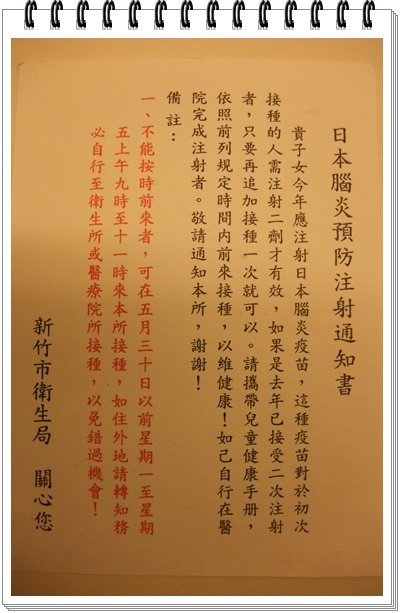 日本腦炎預防注射通知書
貴子女今年應注射日本腦炎疫苗，這種疫苗對於初次
接種的人需注射二劑才有效，如果是去年已接受二次注射
者，只要再追加接種一次就可以。請攜帶兒童健康手册，
依照前列規定時間內前來接種，以維健康！如已自行在醫
院完成注射者。敬請通知本所，謝謝！
備註：
一、不能按時前來者，可在五月三十日以前星期一至星期
五上午九時至十一時來本所接種，如住外地請轉知務
必自行至衛生所或醫療院所接種，以免錯過機會！
新竹市衛生局　關心您